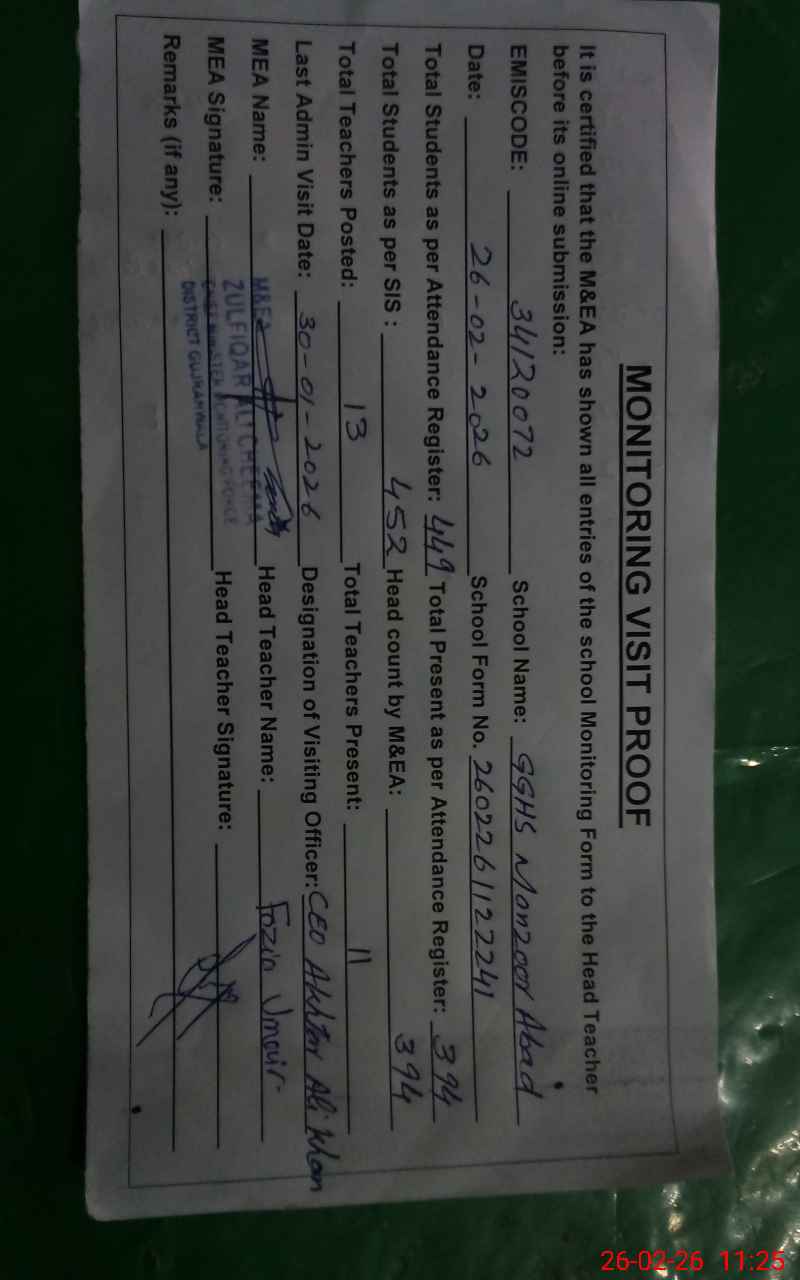 MONITORING VISIT PROOF
It is certified that the M&EA has shown all entries of the school Monitoring Form to the Head Teacher
before its online submission:
EMISCODE: 34120072 School Name: GGHS Manzoor Abad
Date: 26-02-2026 School Form No. 260226112241
Total Students as per Attendance Register: 449 Total Present as per Attendance Register: 394
Total Students as per SIS : 452 Head count by M&EA: 394
Total Teachers Posted: 13 Total Teachers Present: 11
Last Admin Visit Date: 30-01-2026 Designation of Visiting Officer: CEO Akhtar Ali Khan
MEA Name: Head Teacher Name: Fozia Umair
MEA Signature: Head Teacher Signature:
Remarks (if any):
M&EA
ZULFIQAR ALI CHEEMA
CHIEF MINISTER MONITORING FORCE
DISTRICT GUJRANWALA
26-02-26 11:25